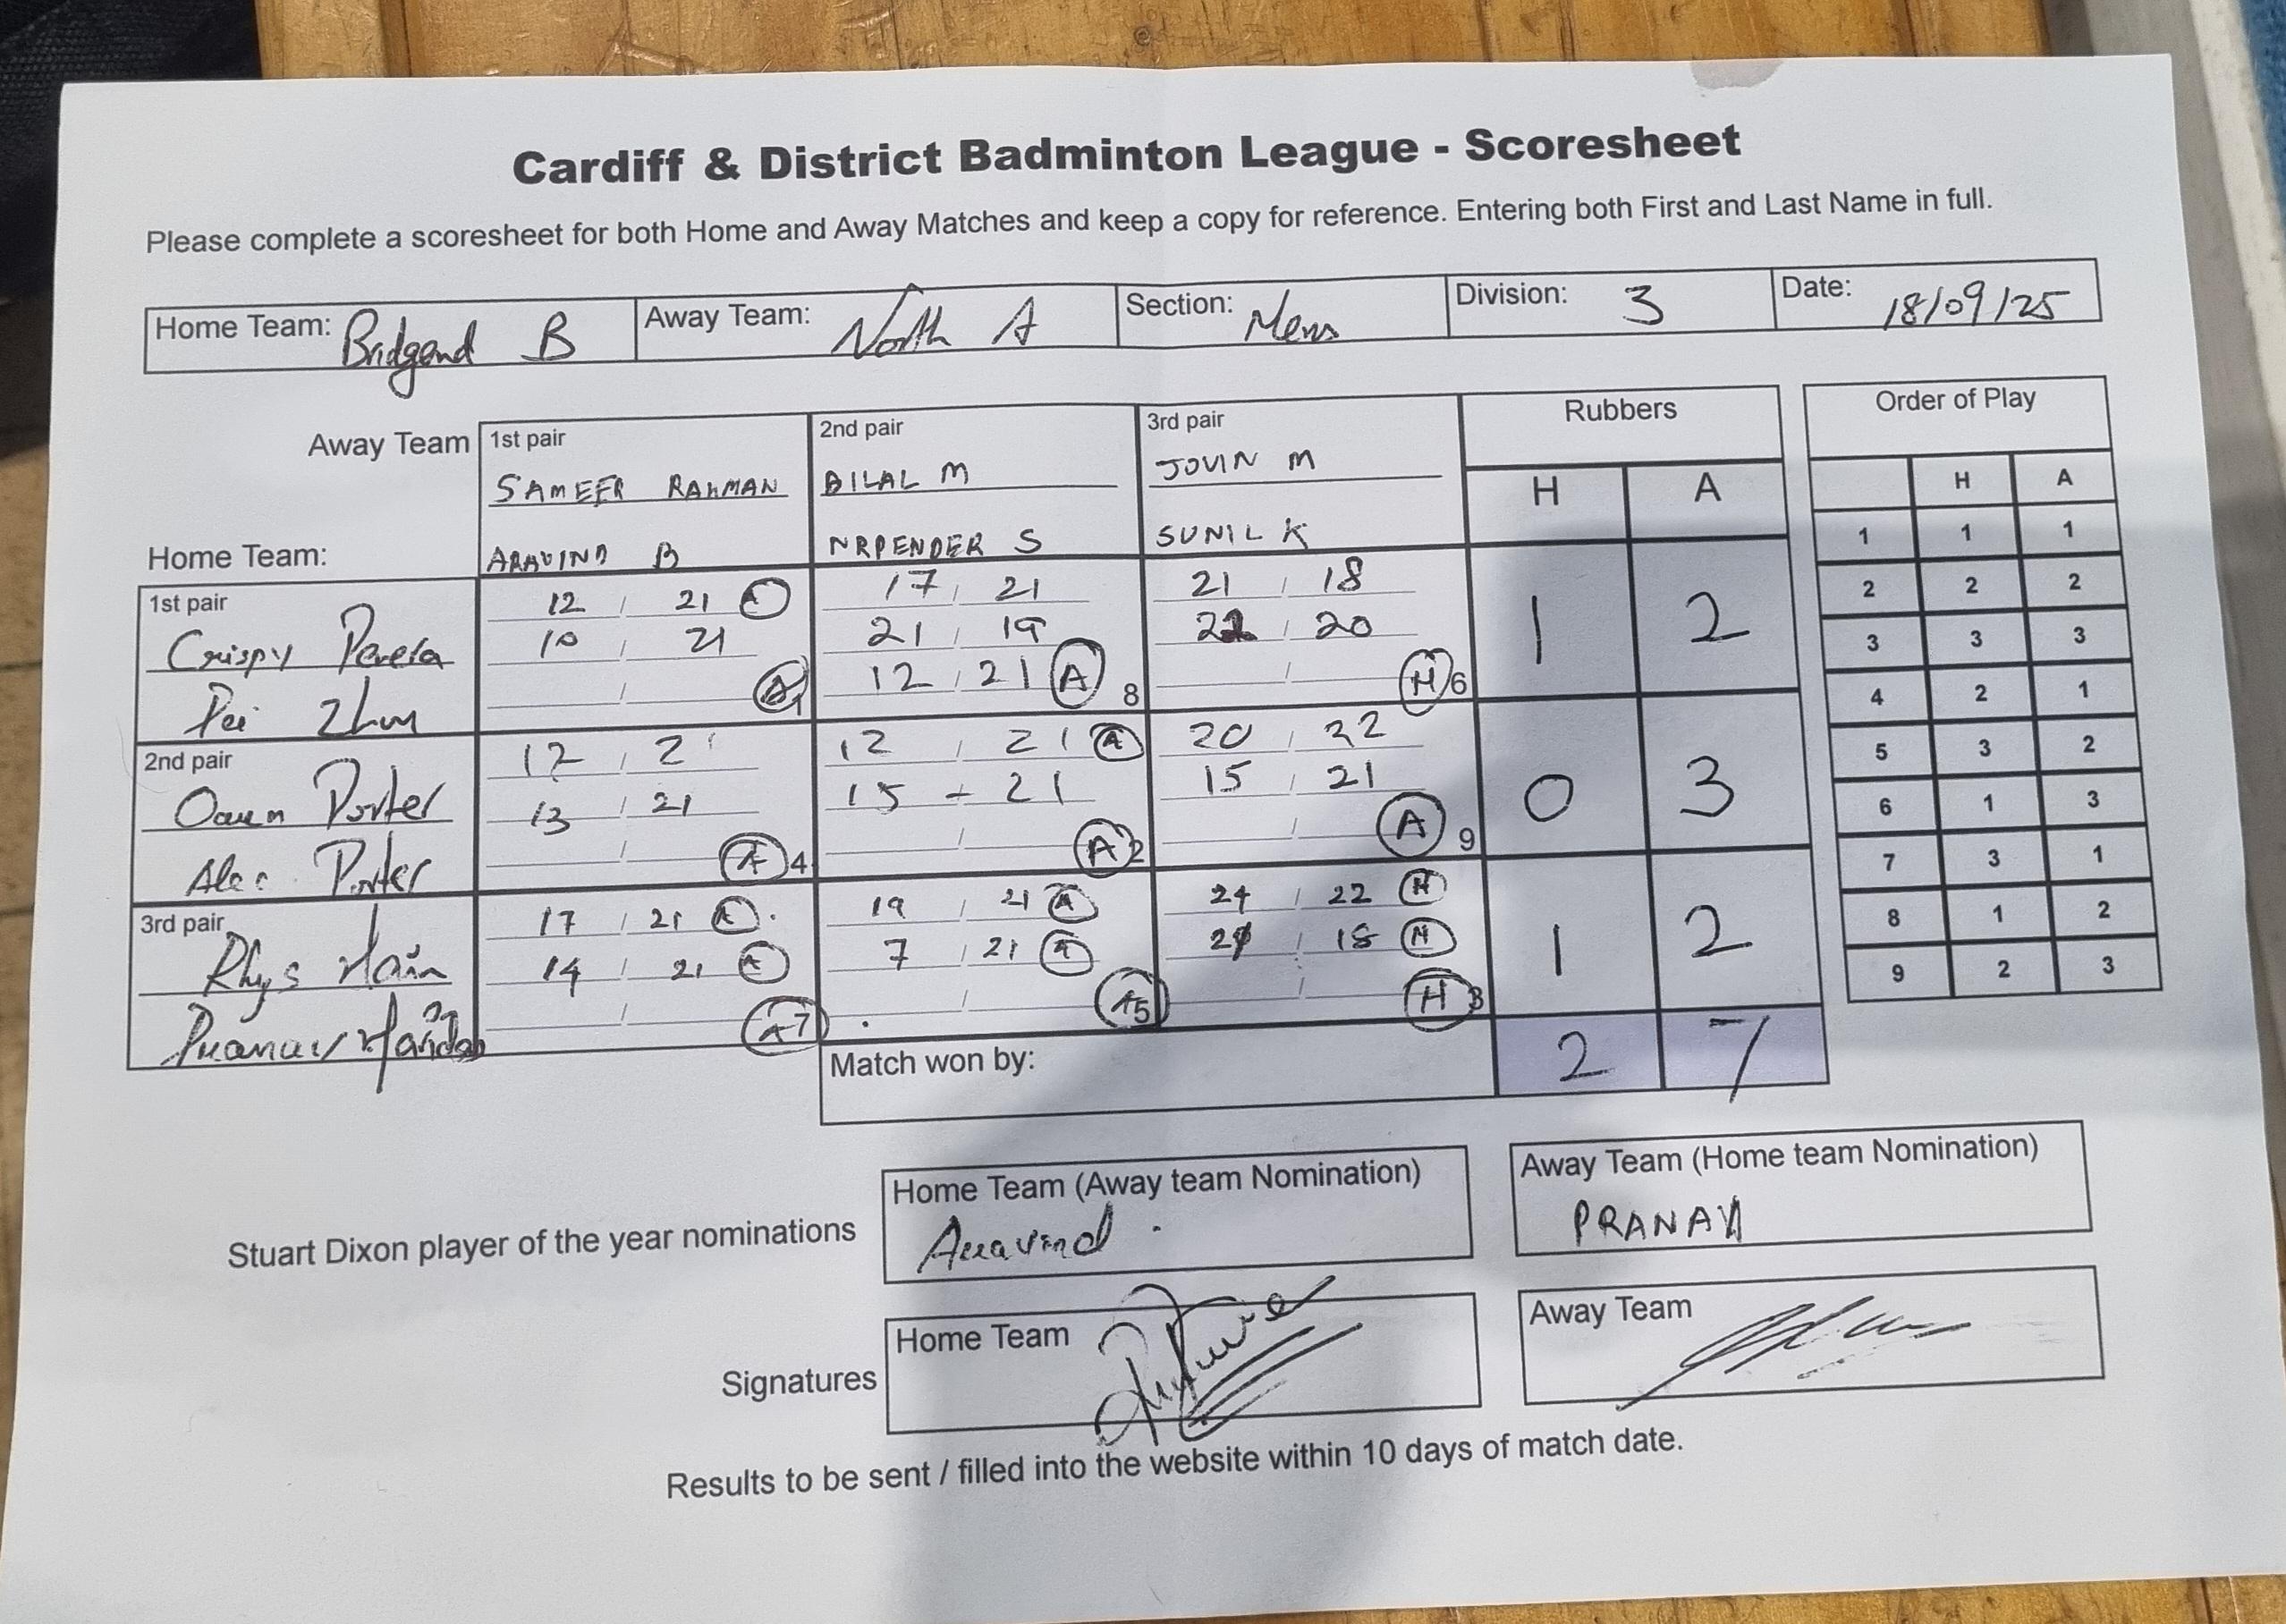 Cardiff & District Badminton League - Scoresheet
Please complete a scoresheet for both Home and Away Matches and keep a copy for reference. Entering both First and Last Name in full.
Home Team: Bridgend B Away Team: North A Section: Mens Division: 3 Date: 18/09/25
Away Team 1st pair 2nd pair 3rd pair Rubbers Order of Play
SAMEER RAHMAN BILAL M JOVIN M H A H A
Home Team: ARAVIND B NRPENDER S SUNIL K 1 1 1
1st pair 12 / 21 A 17 / 21 21 / 18 1 2 2 2 2
Crispy Perera 10 / 21 21 / 19 22 / 20 3 3 3
Pei / A 1 12 / 21 A 8 / H 6 4 2 1
2nd pair 12 / 21 12 / 21 A 20 / 22 0 3 5 3 2
Owen Porter 13 / 21 15 - 21 15 / 21 6 1 3
Alec Porter / A 4 / A 2 / A 9 7 3 1
3rd pair 17 / 21 A . 19 / 21 A 24 / 22 H 1 2 8 1 2
Rhys 14 / 21 A 7 / 21 A 21 / 18 H 9 2 3
/ A 7 . / A 5 / H 3
Match won by: 2 7
Stuart Dixon player of the year nominations
Home Team (Away team Nomination)
Aravind .
Away Team (Home team Nomination)
PRANAV
Signatures
Home Team
Away Team
Results to be sent / filled into the website within 10 days of match date.